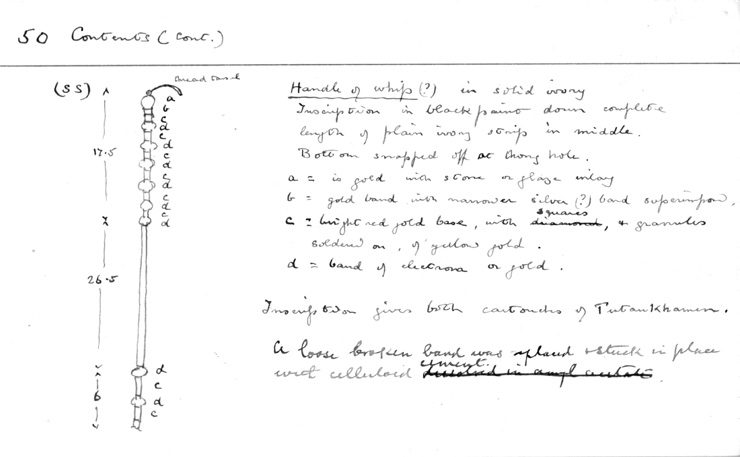 50 Contents (cont.)
(SS)
thread tassel
a
b
c
d
c
d
c
d
c
d
c
d
17.5
26.5
d
c
6
d
c
Handle of whip (?) in solid ivory
Inscription in black paint down complete
length of plain ivory strip in middle.
Bottom snapped off at thong hole.
a = is gold with stone or glaze inlay
b = gold band with narrower silver (?) band superimposed.
c = bright red gold base, with diamond squares, & granules
soldered on, of yellow gold.
d = band of electrum or gold.
Inscription gives both cartouches of Tutankhamen.
A loose broken band was replaced & stuck in place
with celluloid dissolved in amyl acetate cement.